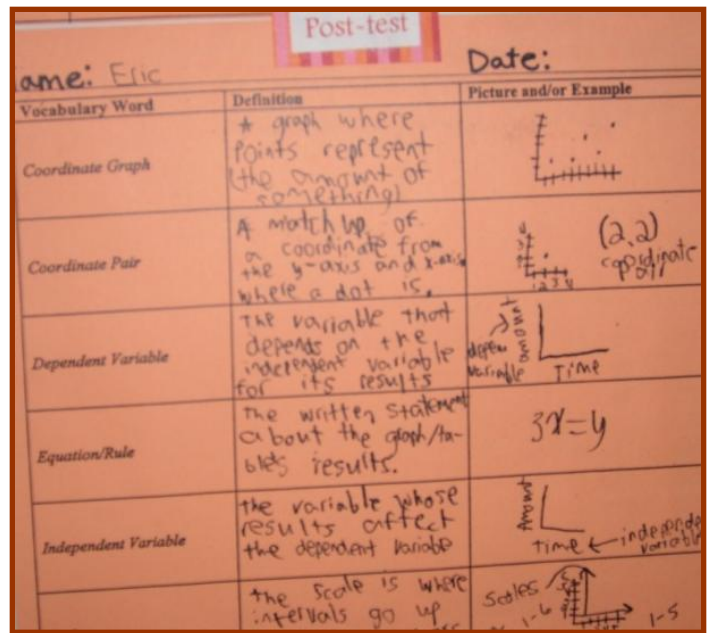 Post-test
ame: Eric
Date:
Vocabulary Word
Definition
Picture and/or Example
Coordinate Graph
A graph where
points represent
(the amount of
something)
Coordinate Pair
A match up of
a coordinate from
the y-axis and x-axis
where a dot is.
(2,2)
coordinate
pair
1 2 3 4
Dependent Variable
The variable that
depends on the
independent variable
for its results
depen
variable
amount
Time
Equation/Rule
The written statement
about the graph/ta-
ble's results.
3x=y
Independent Variable
the variable whose
results affect
the dependent variable
Amount
Time
independe
variable
the scale is where
intervals go up
Scales
1-6
1-5